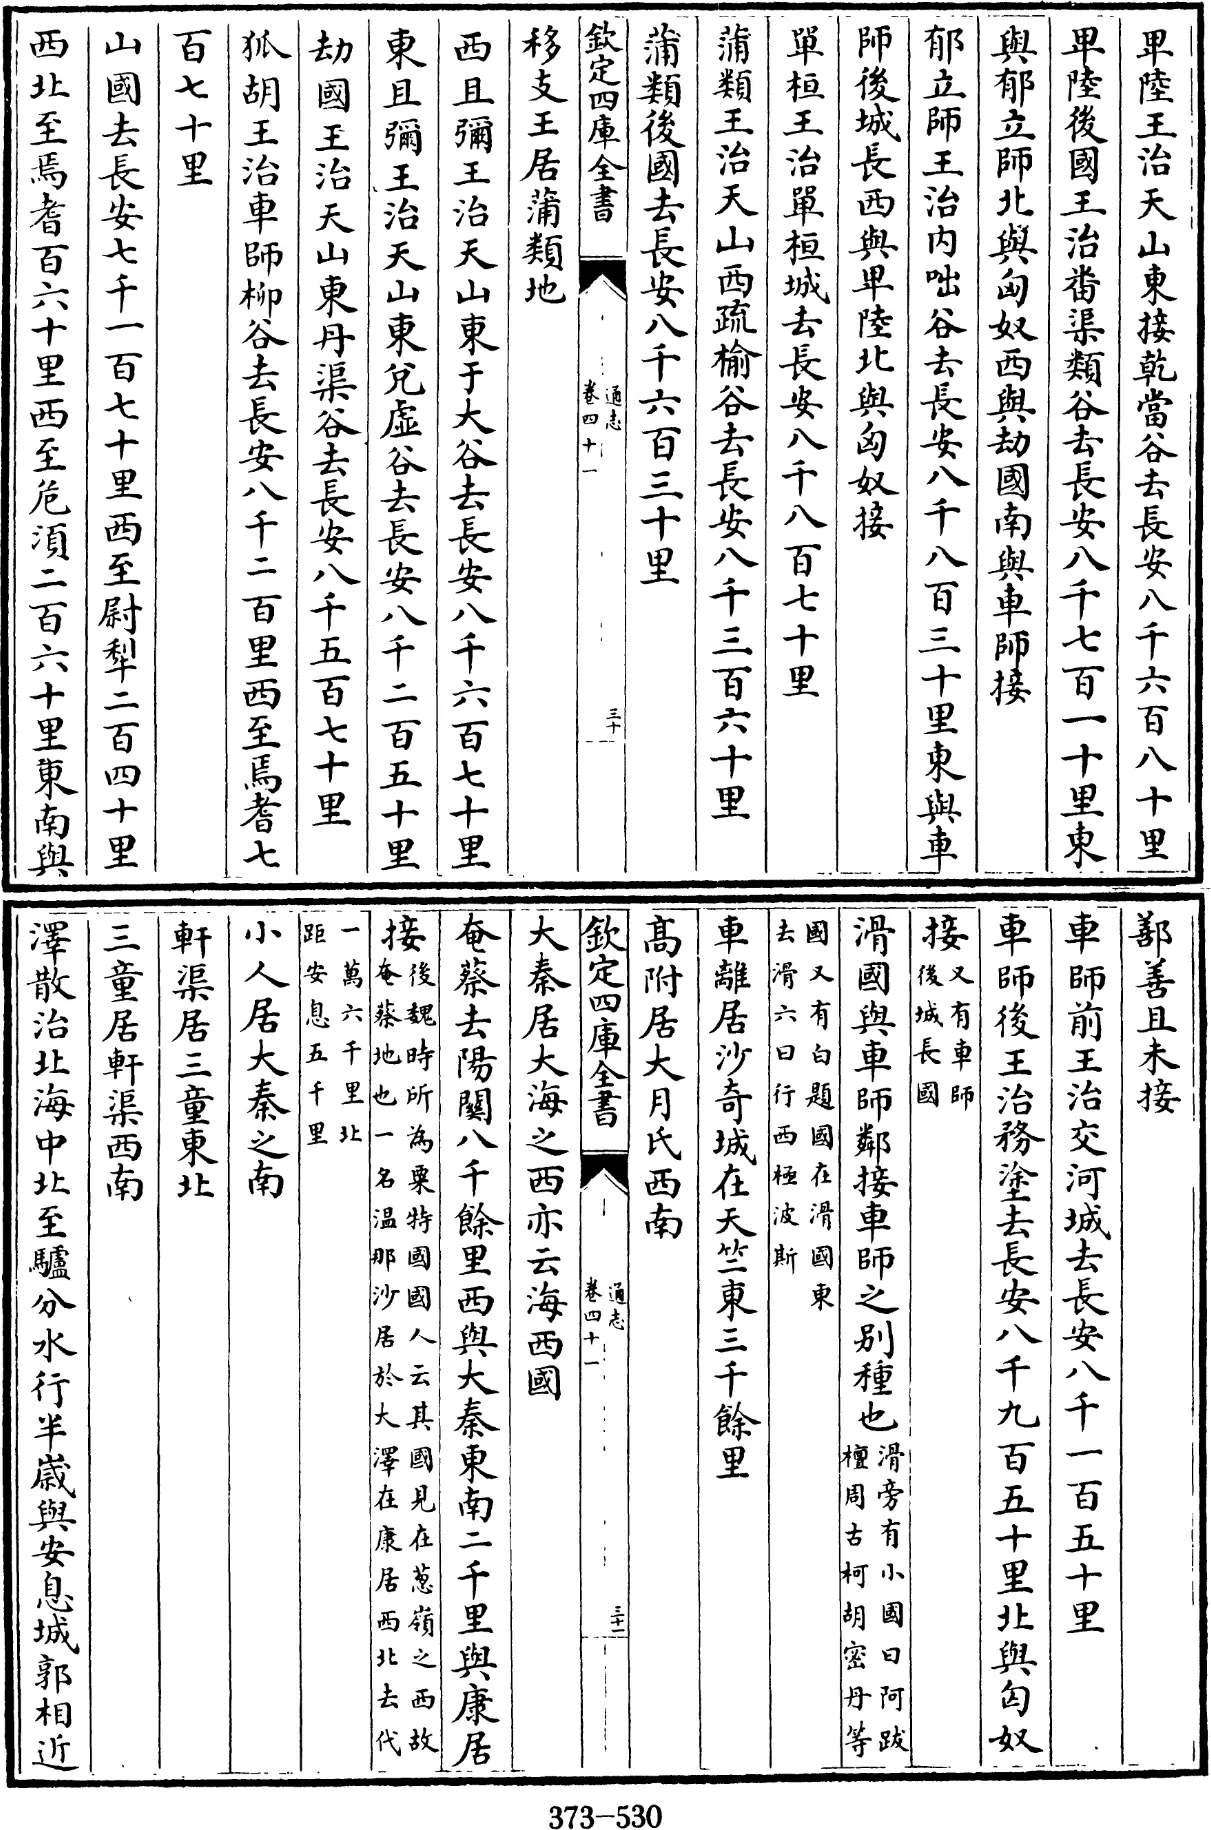 卑陸王治天山東接乾當谷去長安八千六百八十里
卑陸後國王治畨渠類谷去長安八千七百一十里東
與郁立師北與匈奴西與劫國南與車師接
郁立師王治内咄谷去長安八千八百三十里東與車
師後城長西與卑陸北與匈奴接
單桓王治單桓城去長安八千八百七十里
蒲類王治天山西疏榆谷去長安八千三百六十里
蒲類後國去長安八千六百三十里
欽定四庫全書
通志
卷四十一
三十
移支王居蒲類地
西且彌王治天山東于大谷去長安八千六百七十里
東且彌王治天山東兊虛谷去長安八千二百五十里
劫國王治天山東丹渠谷去長安八千五百七十里
狐胡王治車師柳谷去長安八千二百里西至焉耆七
百七十里
山國去長安七千一百七十里西至尉犂二百四十里
西北至焉耆百六十里西至危湏二百六十里東南與
鄯善且末接
車師前王治交河城去長安八千一百五十里
車師後王治務塗去長安八千九百五十里北與匈奴
接又有車師
後城長國
滑國與車師鄰接車師之别種也滑旁有小國曰阿跋
檀周古柯胡密丹等
國又有白題國在滑國東
去滑六日行西極波斯
車離居沙奇城在天竺東三千餘里
髙附居大月氏西南
欽定四庫全書
通志
卷四十一
三十一
大秦居大海之西亦云海西國
奄蔡去陽關八千餘里西與大秦東南二千里與康居
接後魏時所為粟特國國人云其國見在葱嶺之西故
奄蔡地也一名温那沙居於大澤在康居西北去代
一萬六千里北
距安息五千里
小人居大秦之南
軒渠居三童東北
三童居軒渠西南
澤散治北海中北至驢分水行半嵗與安息城郭相近
373-530